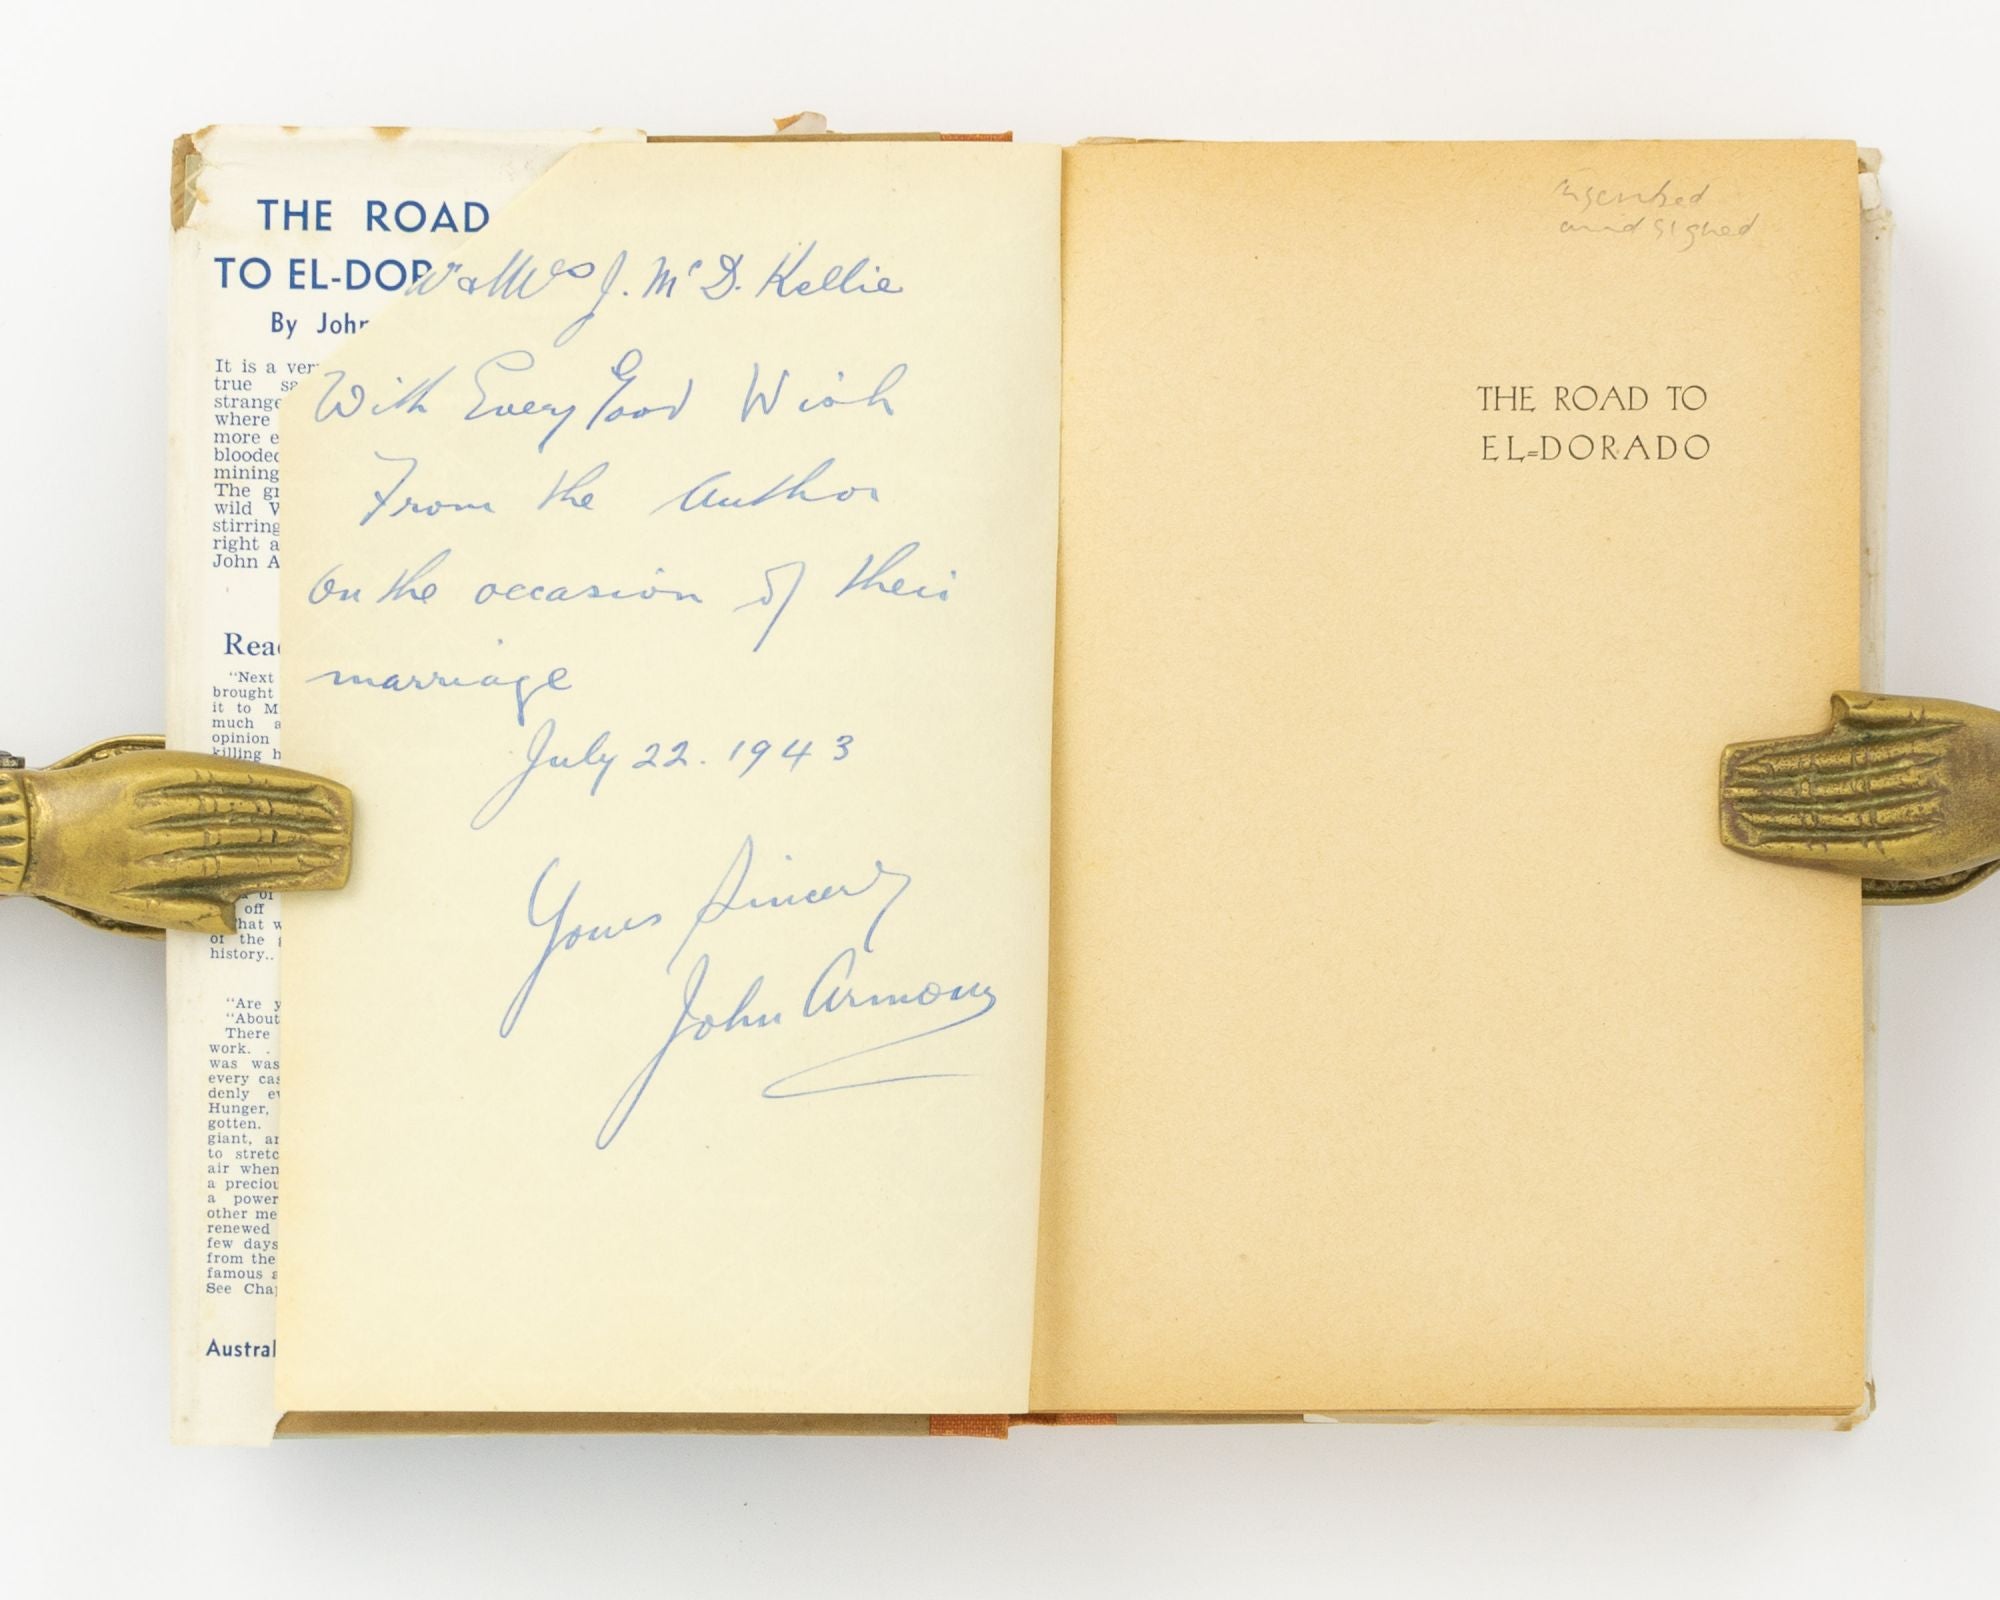 THE ROAD
TO EL-DOR
By John
It is a ver
true sa
strange
where
more e
blooded
mining
The gr
wild W
stirring
right a
John A
Read
"Next
brought
it to M
much a
opinion
killing h
off
hat w
of the g
history..
"Are y
"About
There
work. .
was was
every cas
denly ev
Hunger,
gotten.
giant, an
to stretc
air when
a preciou
a power
other me
renewed
few days
from the
famous a
See Chap
Austral
& Mrs J. McD. Kellie
With Every Good Wish
From the Author
On the occasion of their
marriage
July 22. 1943
Yours Sincerely
John Armour
inscribed
and signed
THE ROAD TO
EL-DORADO